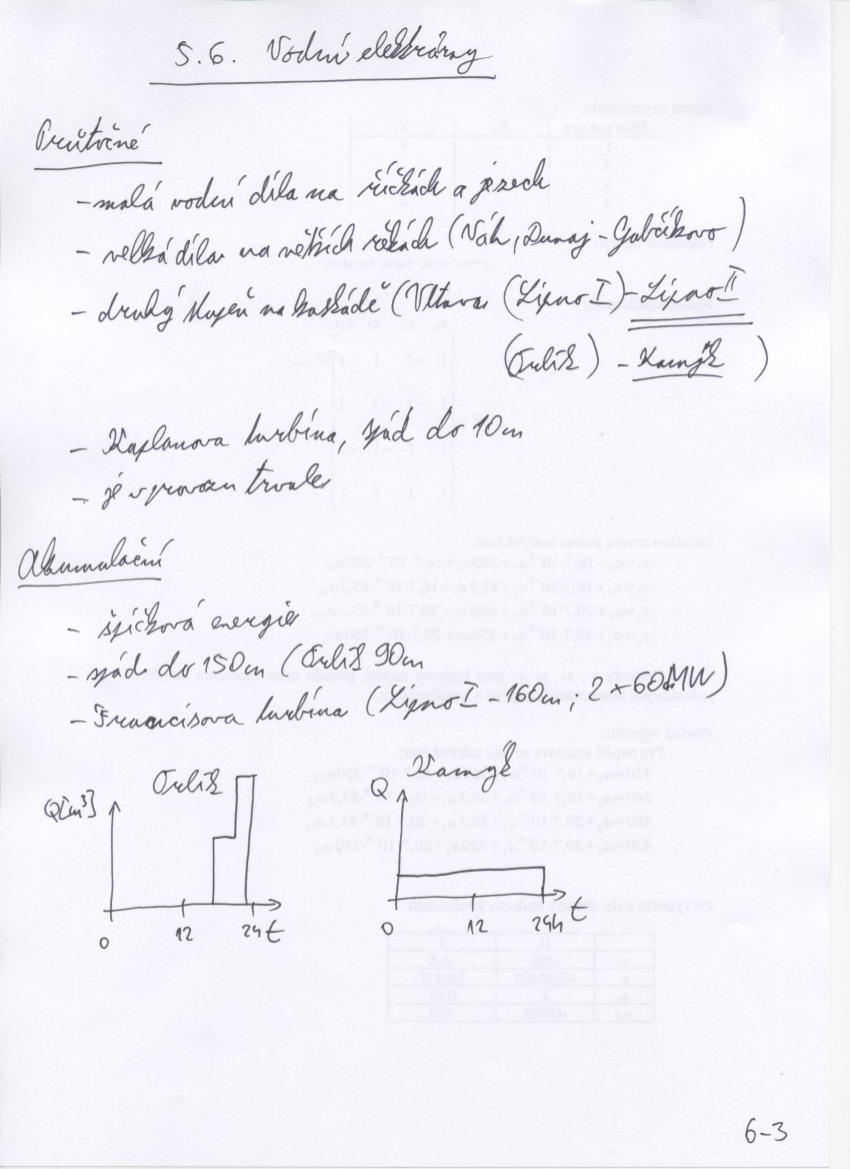 5.6. Vodní elektrárny
Průtočné
- malá vodní díla na říčkách a jezech
- velká díla na větších řekách (Váh, Dunaj - Gabčíkovo)
- druhý stupeň na kaskádě (Vltava (Lipno I) - Lipno II
(Orlík) - Kamýk)
- Kaplanova turbína, spád do 10m
- je v provozu trvale
Akumulační
- špičková energie
- spád do 150m (Orlík 90m
- Francisova turbína (Lipno I - 160m, 2 x 60MW)
Orlík
Kamýk
Q[m³]
Q
0 12 24 t
0 12 24h t
6-3